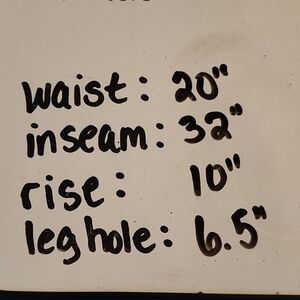 waist: 20"
inseam: 32"
rise: 10"
leg hole: 6.5"